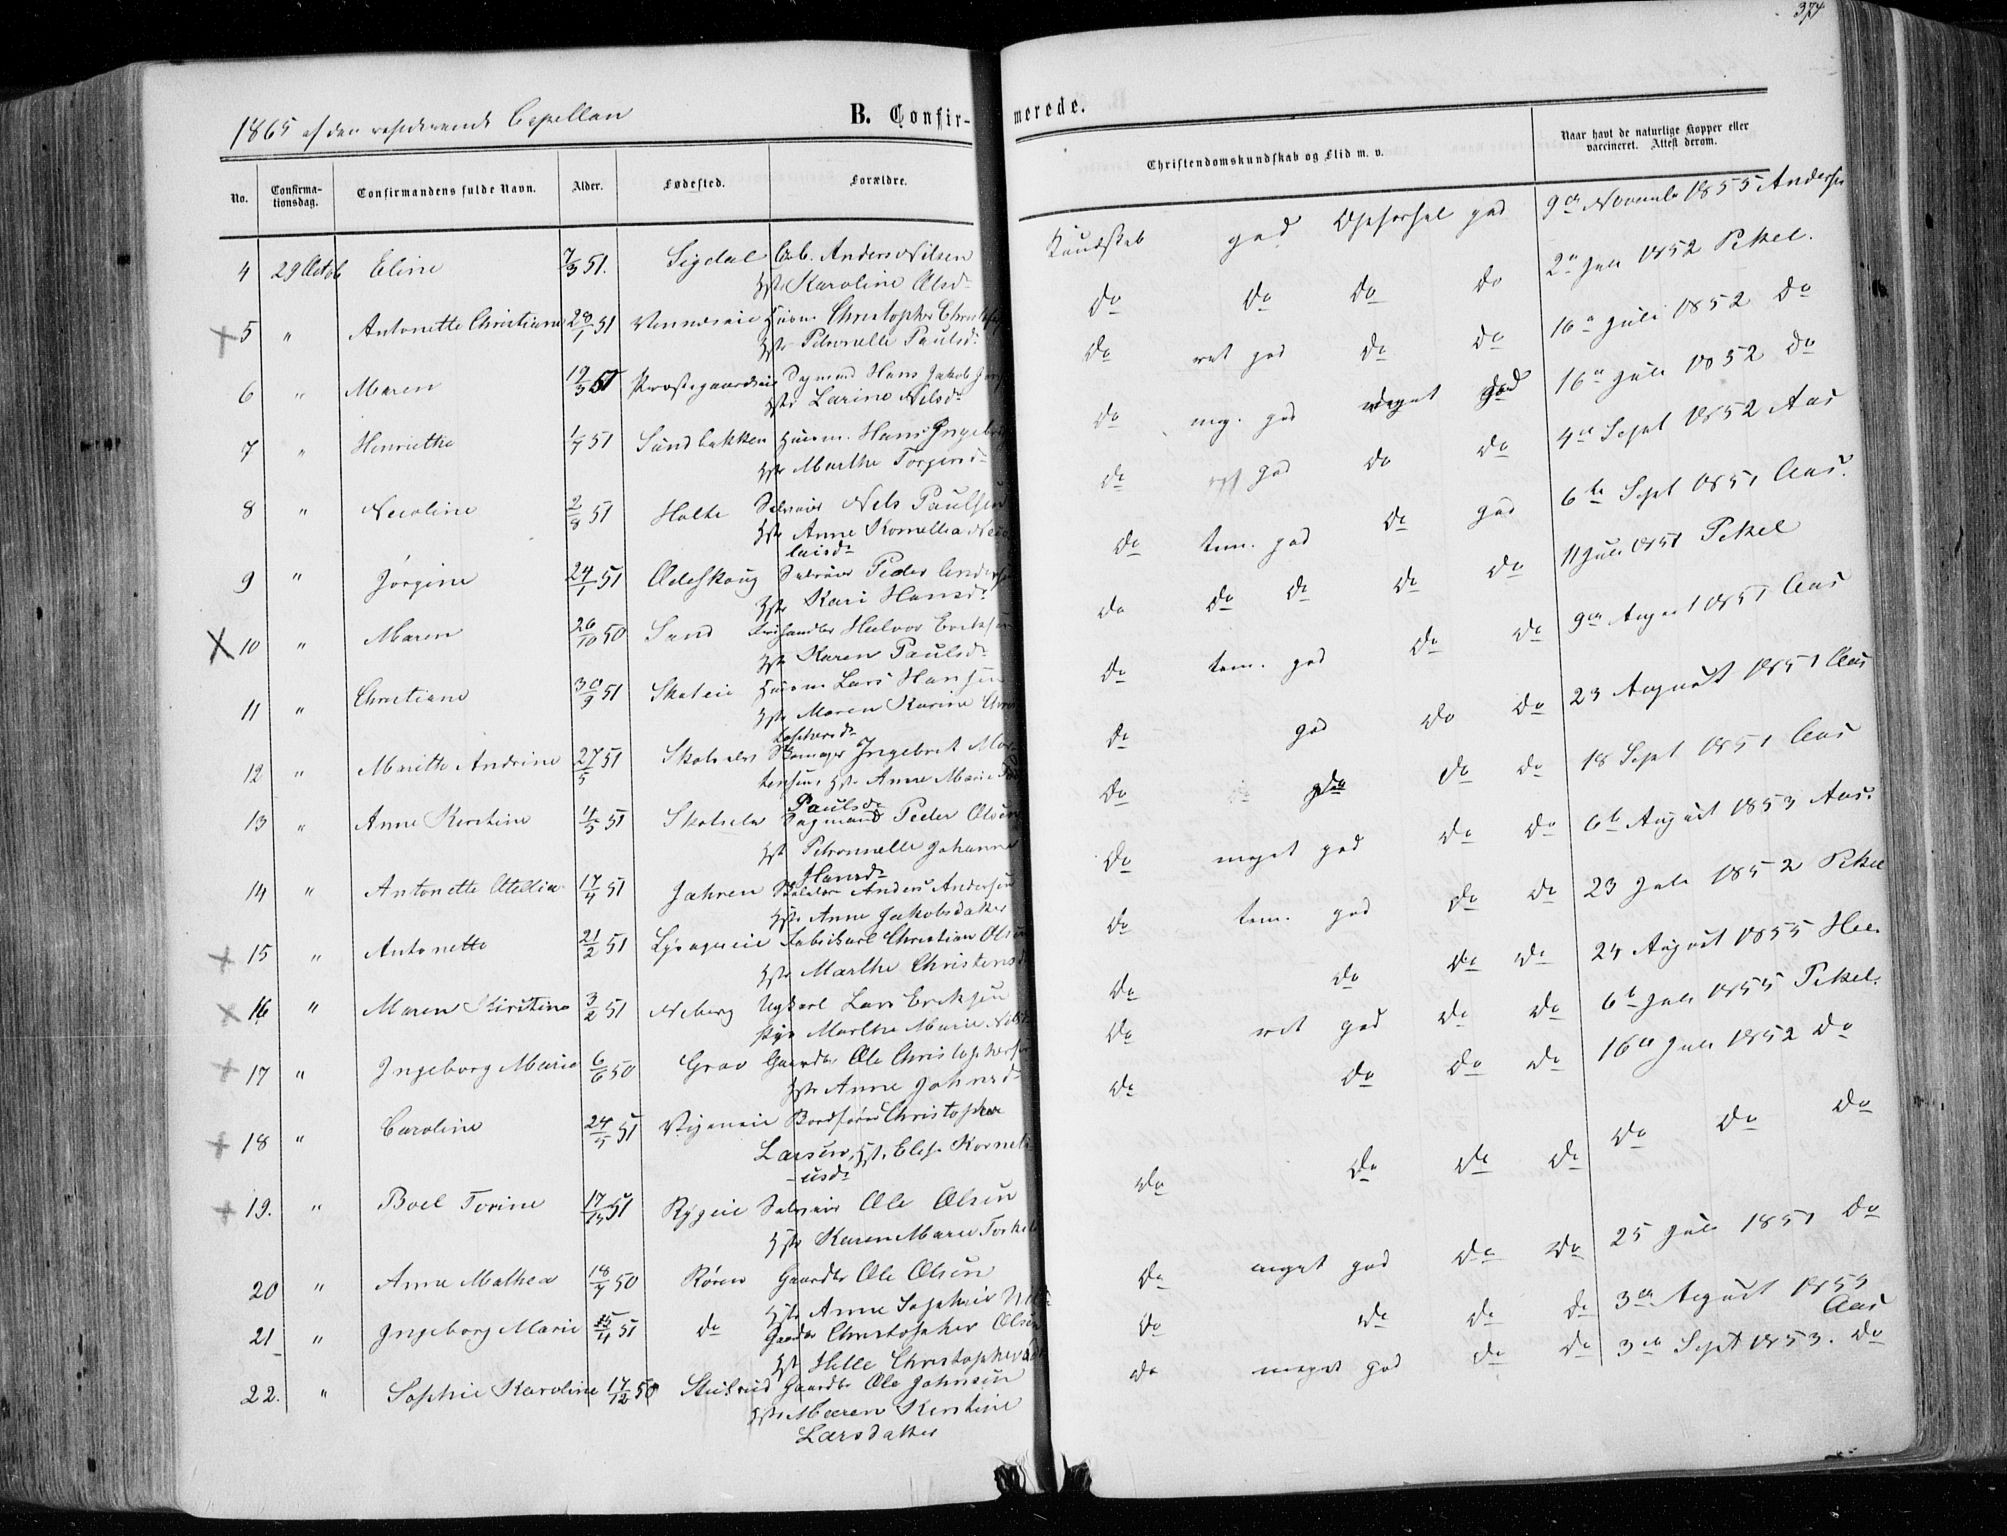 374
1865 af den residerende Capellan
B. Confir-
merede.
No.
Confirma-
tionsdag.
Confirmandens fulde Navn.
Alder.
Fødested.
Forældre.
Christendomskundskab og Flid m. v.
Naar havt de naturlige Kopper eller
vaccineret. Attest derom.
4 29 Octob Eline 7/3 51. Sigdal Gb. Anders Nilsen
Karoline Olsd.
Kundskab god Opførsel god 9de November 1855 Andersen
5 " Antonette Christiane 28/1 51 Huusm. Christopher
Petronelle Paulsd.
do do do do 2n Juli 1852 Pikel.
6 " Maren 19/3 51 Præstegaardseie Dagmand Hans Jakob
Larine Nilsd.
do ret god do do 16n Juli 1852 do
7 " Henriette 51 Sundbakken Huusm. Hans Ingebr
Marthe Torgersd.
do meg. god meget god 16n Juli 1852 do
8 " Nicoline 2/8 51 Holte Nels Paulsen
Anne Kornellia Nico
laisd.
do ret god do do 4de Sept 1852 Aas
9 " Jørgine 24/1 51 Peder Anders
Kari Hansd.
do tem. god do god 6te Sept 1851 Aas.
X 10 " Maren 26/10 50 Sand Halvor Eriksen
Karen Paulsd.
do do do do do 11 Juli 1851 Pikel
11 " Christiane 30/9 51 Skoleie Huusm Lars Hansen
Maren Karine Chris
tophersd.
do tem. god do do 9de August 1851 Aas
12 " Marthe Andrine 27/5 51 Skotselv Skomager Ingebret Mor
tensen, Anne Marie
Paulsd.
do god do do 23 August 1851 Aas
13 " Anne Kirstine 4/5 51 Skotselv Dagmand Peder Olsen
Petronnelle Johanne
Hansd.
do do do do 18 Sept 1851 Aas
14 " Antonette Otellia 17/4 51 Jahren Anders Andersen
Anne Jakobsdatter
do meget god do do 6te August 1853 Aas.
15 " Antonette 21/2 51 Fabrikarl Christian Olsen
Marthe Christensd
do tem. god do do 23 Juli 1852 Pikel
16 " Maren Kirstine 3/2 51 Aeberg Ugkarl Lars Eriksen
Pige Marthe Marie Nilsd
do do do do 24 August 1855
17 " Ingeborg Marie 6/6 50 Grav Gaardbr Ole Christophersen
Anne Johnsd
do ret god do do 6te Juli 1855 Pikel.
18 " Caroline 51 Christopher
Larsen, Elise Korneli
usd.
do do do do 16de Juli 1852 do
19. " Boel Torine 51 Rygeie Ole Olsen
Karen Marie Torkels
do do do do do do do
20 " Anne Mathea 50 Røren Gaardbr Ole Olsen
Anne Sophie Nils
do meget god do do 25 Juli 1851 do
21 " Ingeborg Marie 51 do Gaardbr Christopher Olsen
Helle Christophersd
do do do do 3de August 1855
Aas
22. " Sophie Karoline 17/12 50 Gaardbr Ole Johnsen
Maren Kirstine
Larsdatter
do meget god do do 3de Sept 1853. do